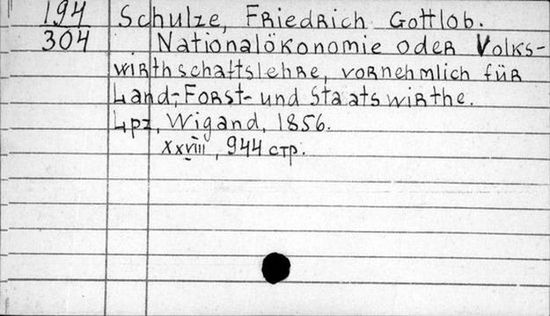 194 Schulze, Friedrich Gottlob.
304 Nationalökonomie oder Volks-
wirthschaftslehre, vornehmlich für
Land-, Forst- und Staatswirthe.
Lpz, Wigand, 1856.
XXVIII, 944 стр.